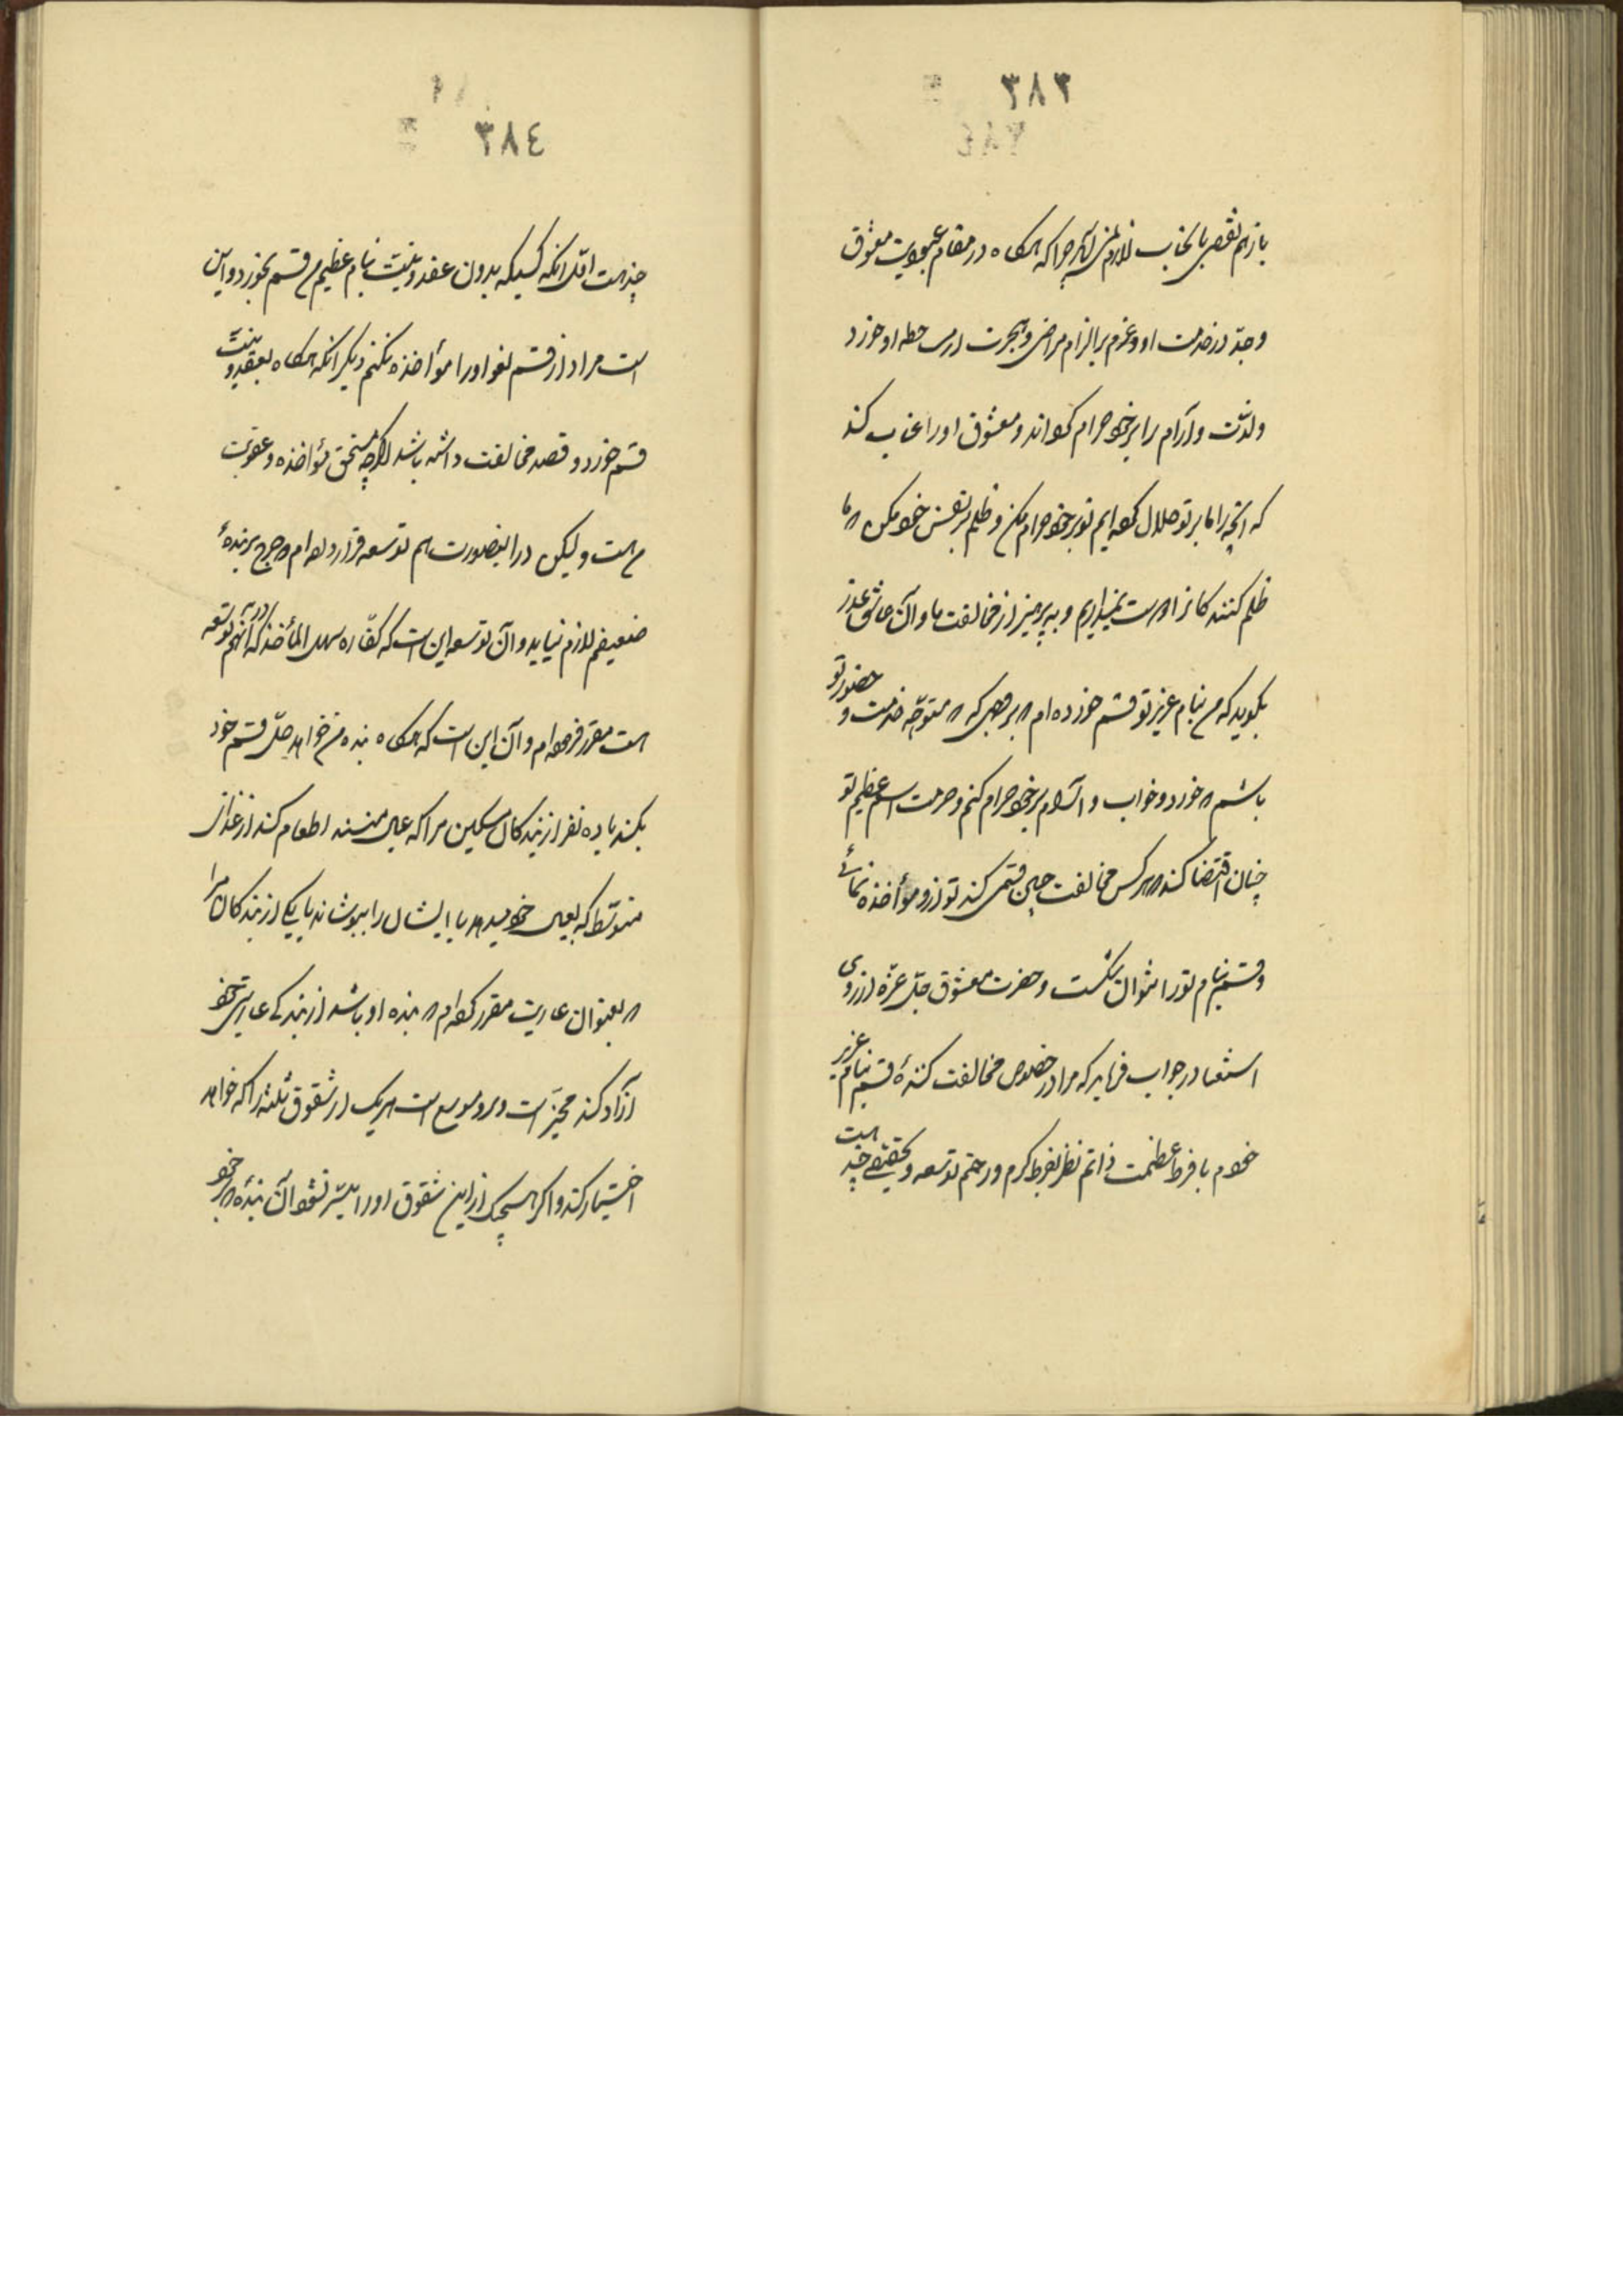 ٣٨٣
باز هم نقصی بانجناب لازم نمی‌آید چرا که هرگاه در مقام عبودیت معشوق
وجدّ در خدمت او و عزم بر الزام مراضی و هجرت از مساخطه او خورد
ولذّت و آرام را بر خود حرام گرداند و معشوق او را عتاب کند
که آنچه را ما بر تو حلال کرده‌ایم تو بر خود حرام مکن و ظلم بر نفس خود مکن که ما
ظلم کنندگانرا دوست نمیداریم و به پرهیز از مخالفت ما و آن عاشق عذر
بگوید که من بنام عزیز تو قسم خورده‌ام که بر وجهی که متوجّه خدمت و حضور تو
باشم که خورد و خواب و آرام بر خود حرام کنم و حرمت اسم عظیم تو
چنان اقتضا کند که هر کس مخالفت چنین قسمی کند تو ازو مؤاخذه نمائی
و قسم بنام تو را نتوان شکست و حضرت معشوق جلّ عزّه از روی
استغنا در جواب فرماید که مرا در خصوص مخالفت کنندهٔ قسم بنام عزیز
خودم با فرط عظمت ذاتم نظر بفرط کرم و رحمتم توسعه و تخفیفی چند است
٣٨٤
چند است اوّل آنکه کسیکه بدون عقد و نیّت بنام عظیم من قسم بخورد و این
است مراد از قسم لغو او را مؤاخذه نکنم دیگر آنکه هرگاه بعقد و نیّت
قسم خورد و قصد مخالفت داشته باشد اگرچه مستحق مؤاخذه و عقوبت
من است ولیکن در اینصورت هم توسعه قرار داده‌ام که حرج بر بندهٔ
ضعیفم لازم نیاید و آن توسعه این است که کفّاره سهل المأخذ که در آنهم توسعه
است مقرر فرموده‌ام و آن این است که هرگاه بنده من خواهد حلّ قسم خود
بکند یا ده نفر از بندگان مسکین مرا که عیال منند اطعام کند از غذای
متوسّط که بعیال خود میدهد یا ایشان را بپوشاند یا یکی از بندگان مرا
که بعنوان عاریت مقرر کرده‌ام که بنده او باشد از بندگی عاریتی خود
آزاد کند مخیّر است و بر او موسع است هریک از شقوق ثلثه را که خواهد
اختیار کند و اگر هیچیک از این شقوق او را میسّر نشود آن بنده بر خود